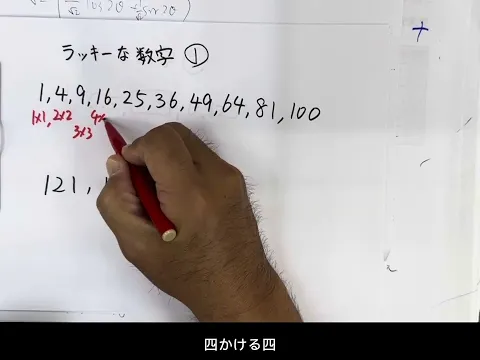 ラッキーな数字 ①
1, 4, 9, 16, 25, 36, 49, 64, 81, 100
1×1, 2×2 4×
3×3
121, 1
四かける四